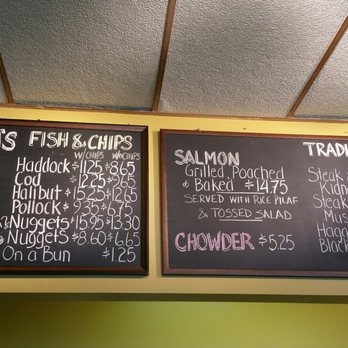 FISH & CHIPS
W/CHIPS W/o CHIPS
Haddock $11.25 $8.65
Cod
Halibut $12.65
Pollock $9.35 $6.75
Nuggets $15.95 $13.30
Nuggets $8.60 $6.65
On a Bun $1.25
SALMON
Grilled, Poached
& Baked $14.75
SERVED WITH RICE PILAF
& TOSSED SALAD
CHOWDER $5.25
TRADI
Steak
Kidn
Steak
Mus
Hagg
Black